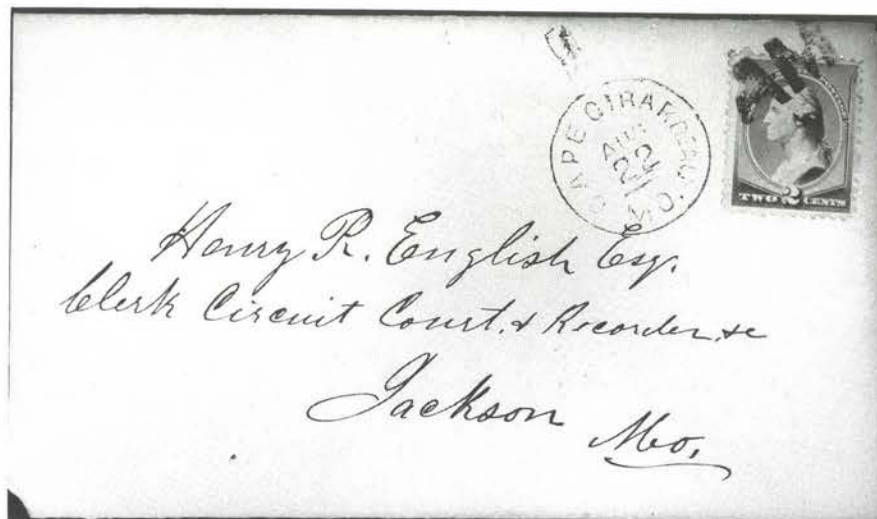 CAPE GIRARDEAU, MO.
AUG
22
TWO 2 CENTS
Henry R. English Esq.
Clerk Circuit Court. & Recorder &c
Jackson
Mo.